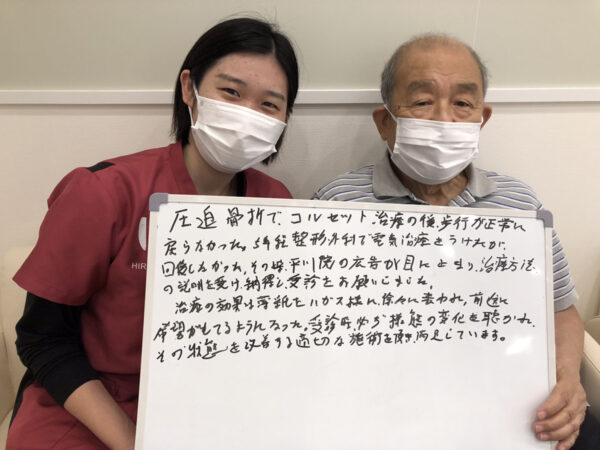 圧迫骨折で、コルセット治療の後、歩行が正常に
戻らなかった。5年程整形外科で電気治療をうけたが、
回復しなかった。その時、平川院の広告が目に止まり、治療方法
の説明を受け、納得し受診をお願いした。
治療の効果は薄紙をハガス様に、徐々に表われ、前途に
希望がもてるようになった。受診時、必ず様態の変化を聴かれ、
その状態を改善する適切な施術を頂き満足しています。
HIR